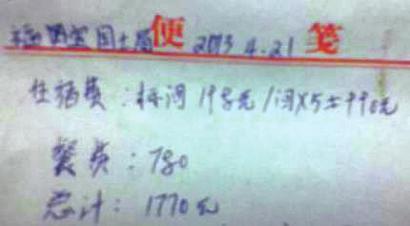 国土局 便 2013.4.21 笺
住宿费：标间198元/间×5=990元
餐费：780
总计：1770元